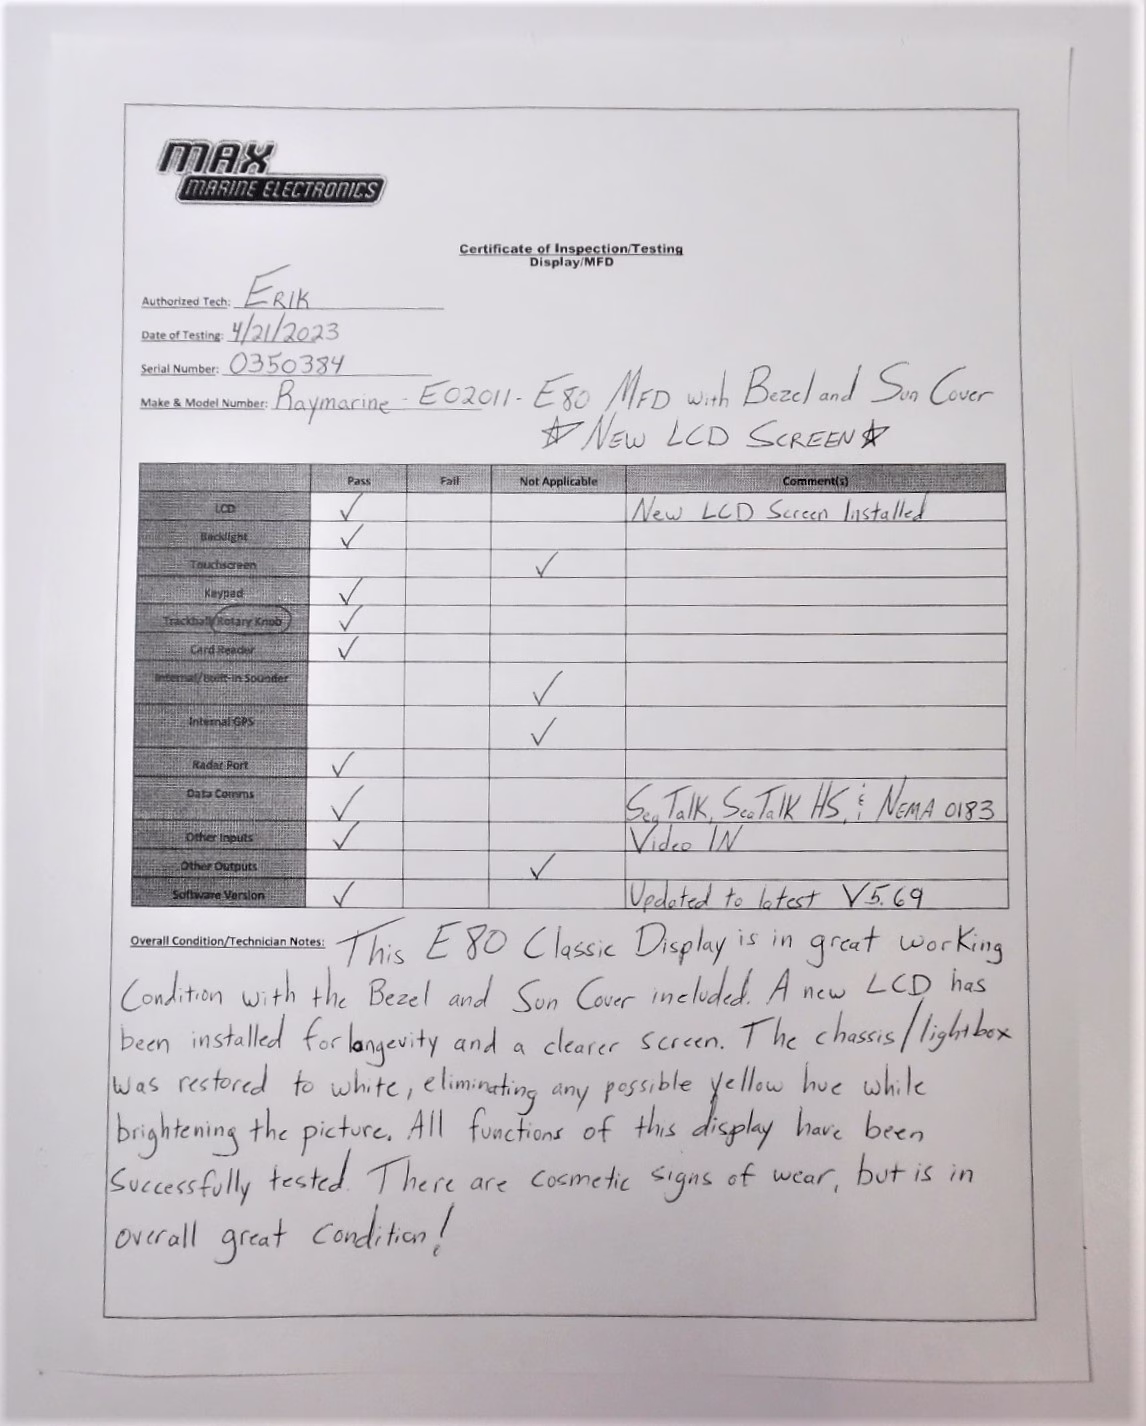 MAX
MARINE ELECTRONICS
Certificate of Inspection/Testing
Display/MFD
Authorized Tech: ERIK
Date of Testing: 4/21/2023
Serial Number: 0350384
Make & Model Number: Raymarine - E02011 - E80 MFD with Bezel and Sun Cover
☆ NEW LCD SCREEN ☆
Pass Fail Not Applicable Comment(s)
LCD ✓ New LCD Screen Installed
Backlight ✓
Touchscreen ✓
Keypad ✓
Trackball/Rotary Knob ✓
Card Reader ✓
Internal/Built-in Sounder ✓
Internal GPS ✓
Radar Port ✓
Data Comms ✓ SeaTalk, SeaTalk HS, & NEMA 0183
Other Inputs ✓ Video IN
Other Outputs ✓
Software Version ✓ Updated to latest V5.69
Overall Condition/Technician Notes: This E80 Classic Display is in great working
Condition with the Bezel and Sun Cover included. A new LCD has
been installed for longevity and a clearer screen. The chassis/lightbox
was restored to white, eliminating any possible yellow hue while
brightening the picture. All functions of this display have been
Successfully tested. There are cosmetic signs of wear, but is in
overall great condition!